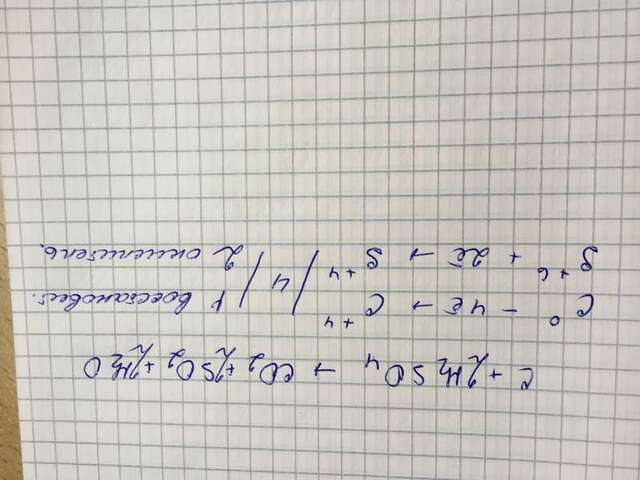 C + 2H₂SO₄ → CO₂ + 2SO₂ + 2H₂O
C⁰ - 4ē → C⁺⁴ / 4 / 1 восстановит.
S⁺⁶ + 2ē → S⁺⁴ / 2 окислитель.